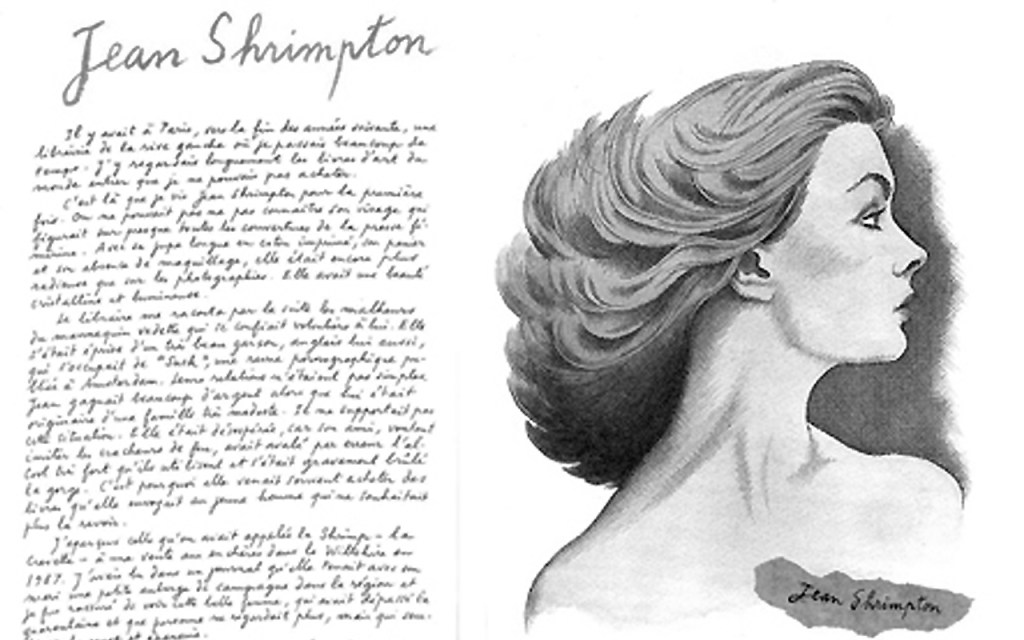 Jean Shrimpton
Il y avait à Paris, vers la fin des années soixante, une
librairie de la rive gauche où je passais beaucoup de
temps. J'y regardais longuement les livres d'art du
monde entier que je ne pouvais pas acheter.
C'est là que je vis Jean Shrimpton pour la première
fois. On ne pouvait pas ne pas connaître son visage qui
figurait sur presque toutes les couvertures de la presse fé-
minine. Avec sa jupe longue en coton imprimé, son panier
et son absence de maquillage, elle était encore plus
radieuse que sur les photographies. Elle avait une beauté
cristalline et lumineuse.
Le libraire me raconta par la suite les malheurs
du mannequin vedette qui se confiait volontiers à lui. Elle
s'était éprise d'un très beau garçon, anglais lui aussi,
qui s'occupait de "Suck", une revue pornographique pu-
bliée à Amsterdam. Leurs relations n'étaient pas simples,
Jean gagnait beaucoup d'argent alors que lui était
originaire d'une famille très modeste. Il ne supportait pas
cette situation. Elle était désespérée, car son ami, voulant
imiter les cracheurs de feu, avait avalé par erreur l'al-
cool très fort qu'ils utilisent et s'était gravement brûlé
la gorge. C'est pourquoi elle venait souvent acheter des
livres qu'elle envoyait au jeune homme qui ne souhaitait
plus la revoir.
J'aperçus celle qu'on avait appelée la Shrimp - la
Crevette - à une vente aux enchères dans le Wiltshire en
1987. J'avais lu dans un journal qu'elle tenait avec son
mari une petite auberge de campagne dans la région et
je fus rassuré de voir cette belle femme, qui avait dépassé la
quarantaine et que personne ne regardait plus, mais qui sem-
Jean Shrimpton